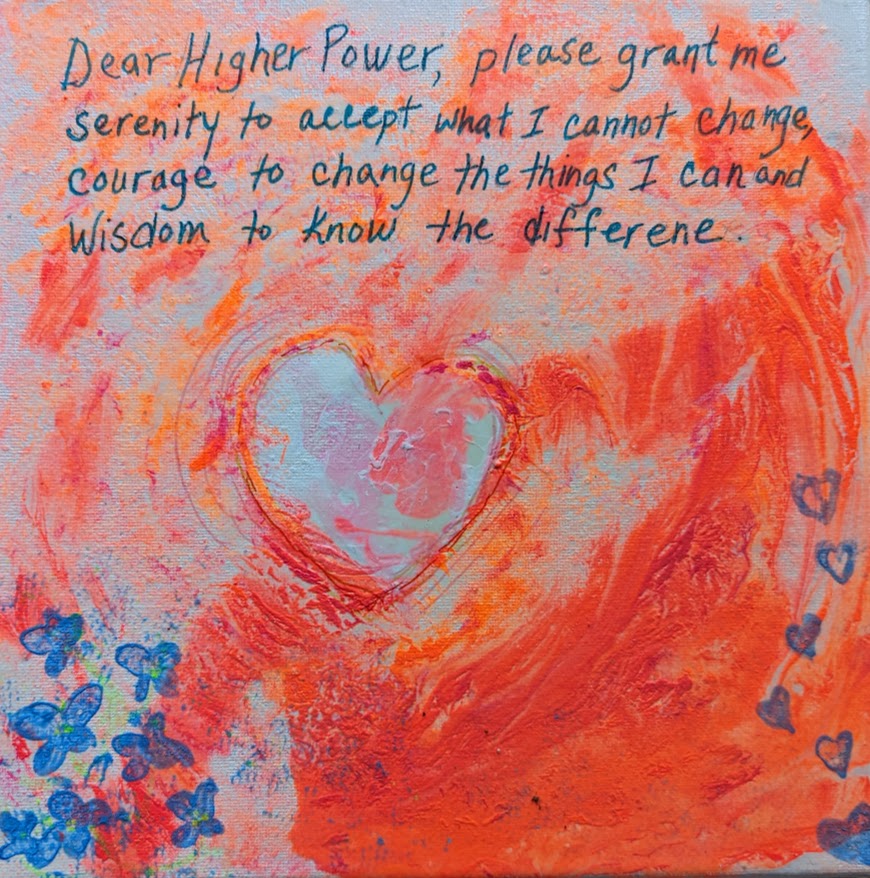 Dear Higher Power, please grant me
serenity to accept what I cannot change,
courage to change the things I can and
Wisdom to know the differene.